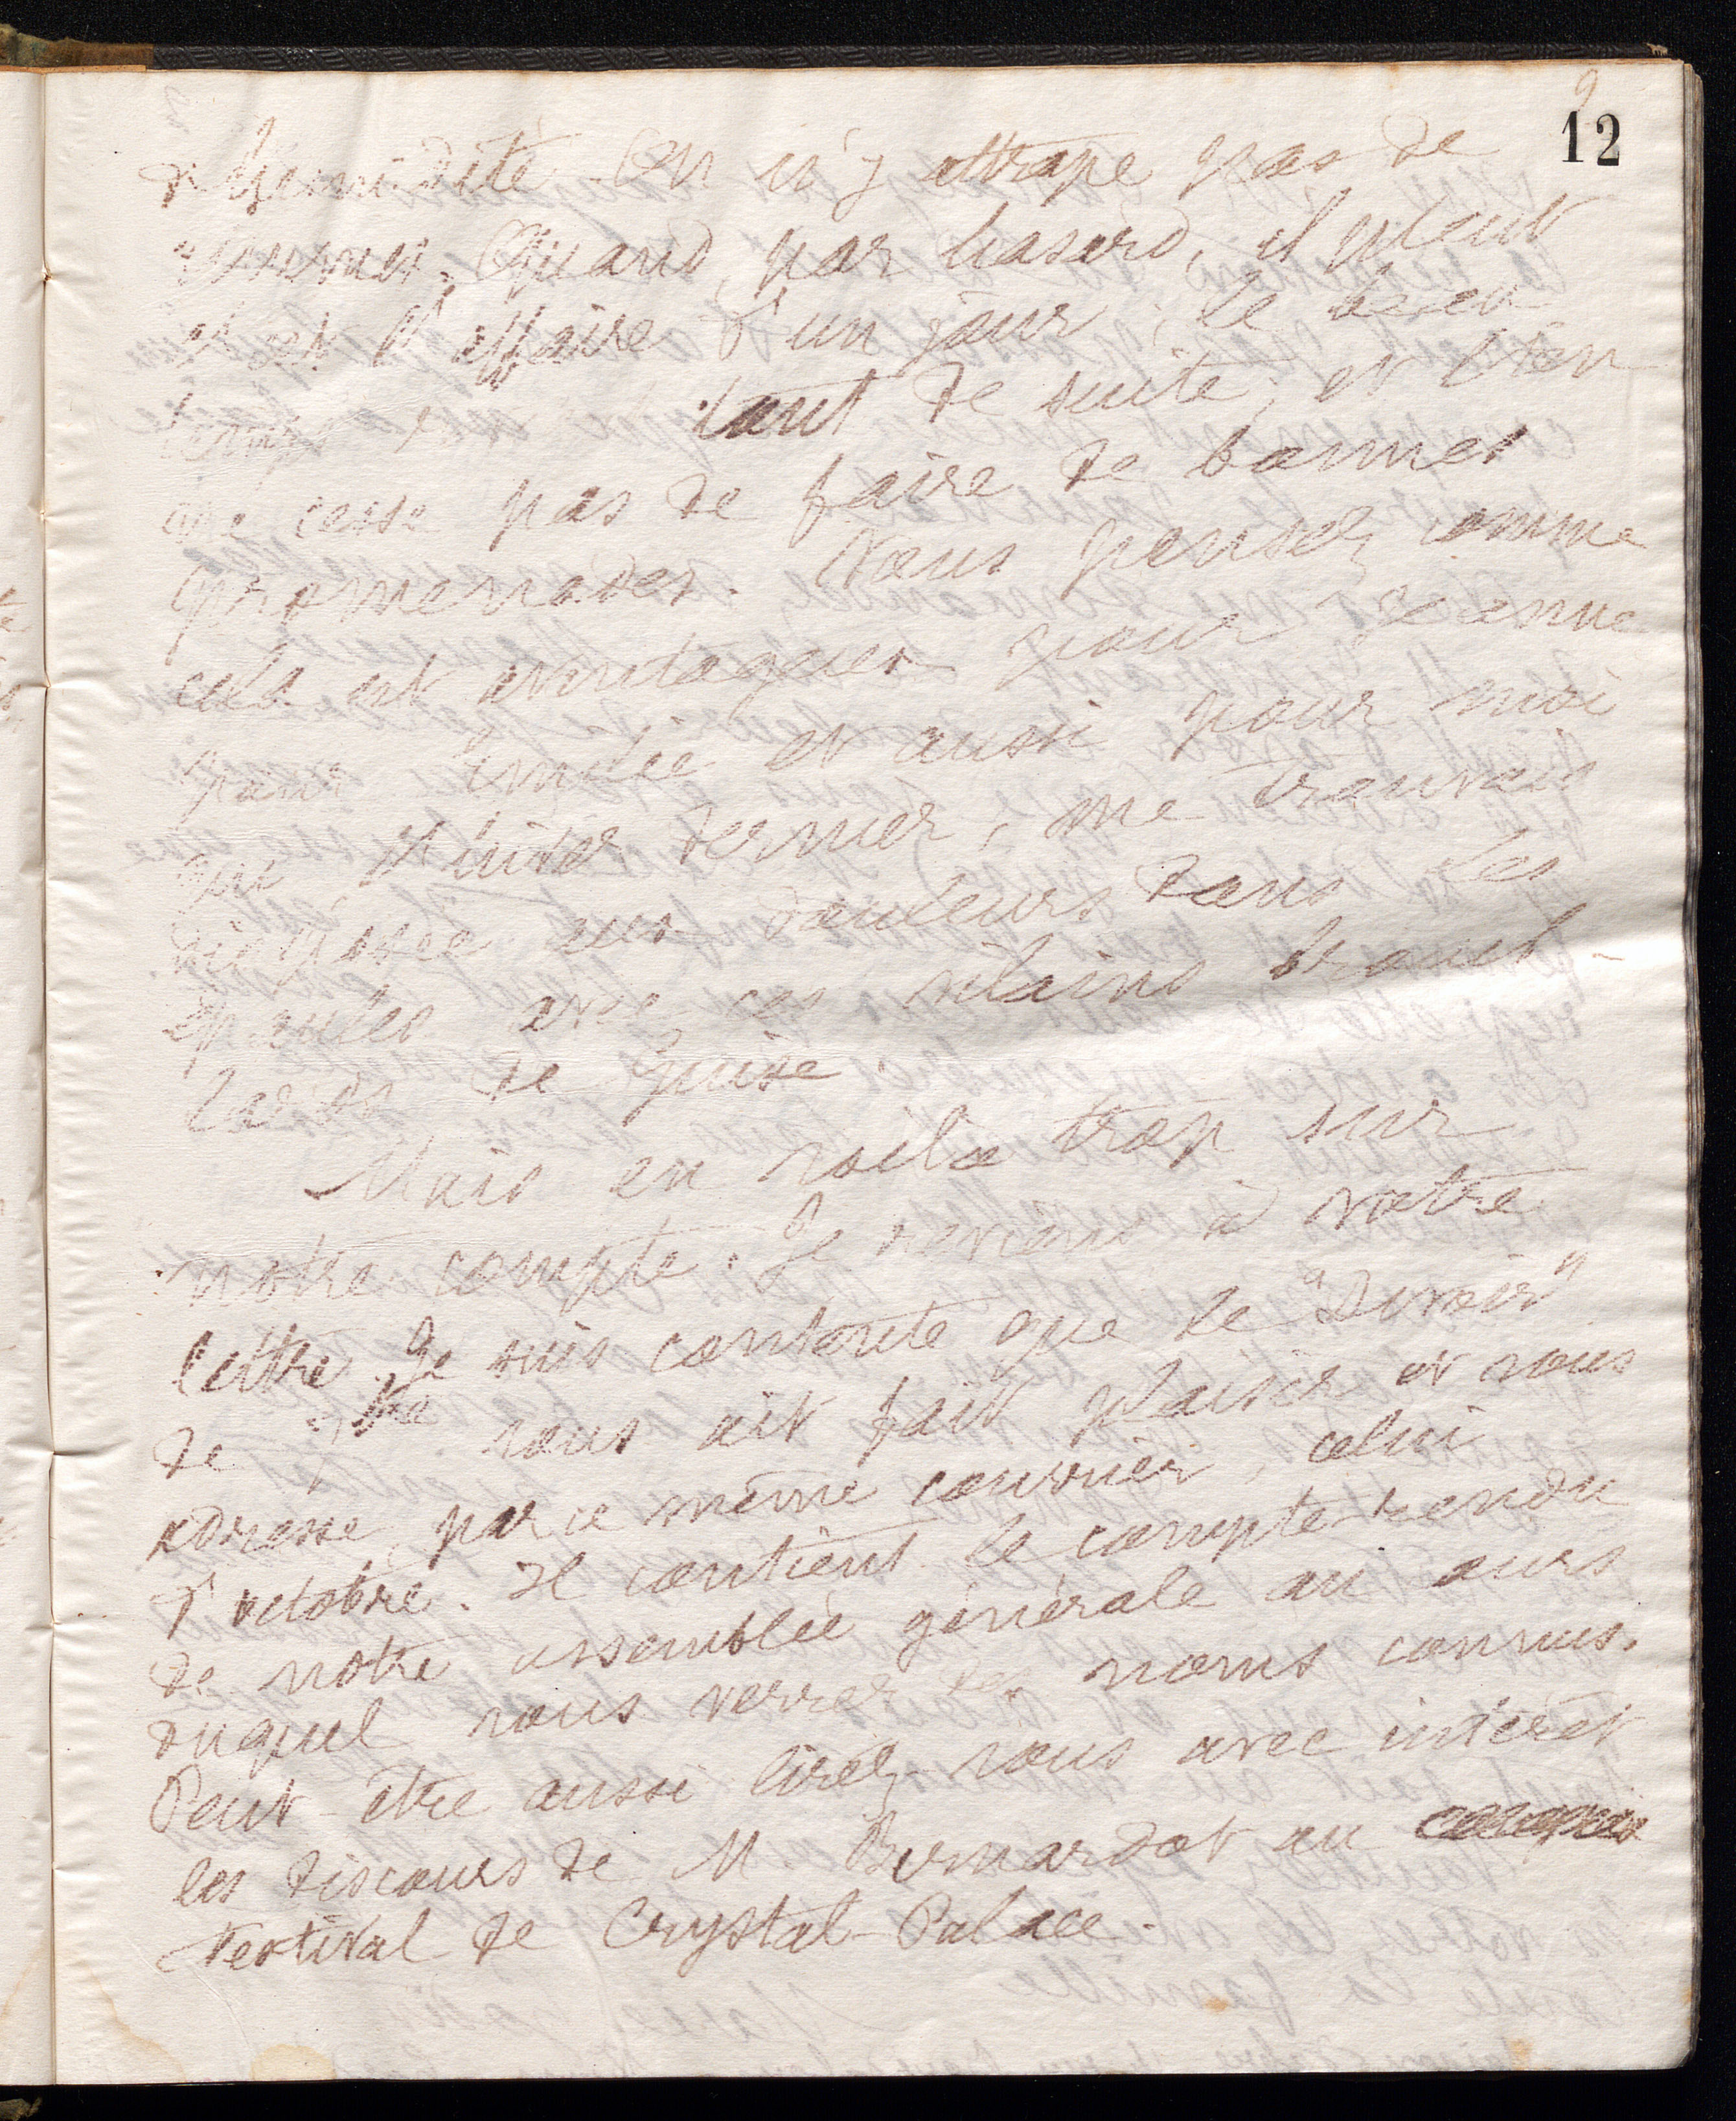 9
12
d'humidité. On n'y attrape pas de
rhumes. Quand, par hasard, il pleut
c'est l'affaire d'un jour; le beau
temps tout de suite; et l'on
ne cesse pas de faire de bonnes
promenades. Vous pensez comme
cela est avantageux pour Jeanne
pour Emilie et aussi pour moi
qui, l'hiver dernier, me trouvais
exposée aux douleurs dans les
épaules avec ces vilains brouil-
lards de Guise.
Mais en voilà trop sur
notre compte. Je reviens à votre
lettre. Je suis contente que le "Devoir"
de 7bre vous ait fait plaisir et vous
adresse, par ce même courrier, celui
d'octobre. Il contient le compte-rendu
de notre assemblée générale au cours
duquel vous verrez des noms connus.
Peut-être aussi lirez-vous avec intérêt
les discours de M. Bernardot au
Festival de Crystal-Palace.